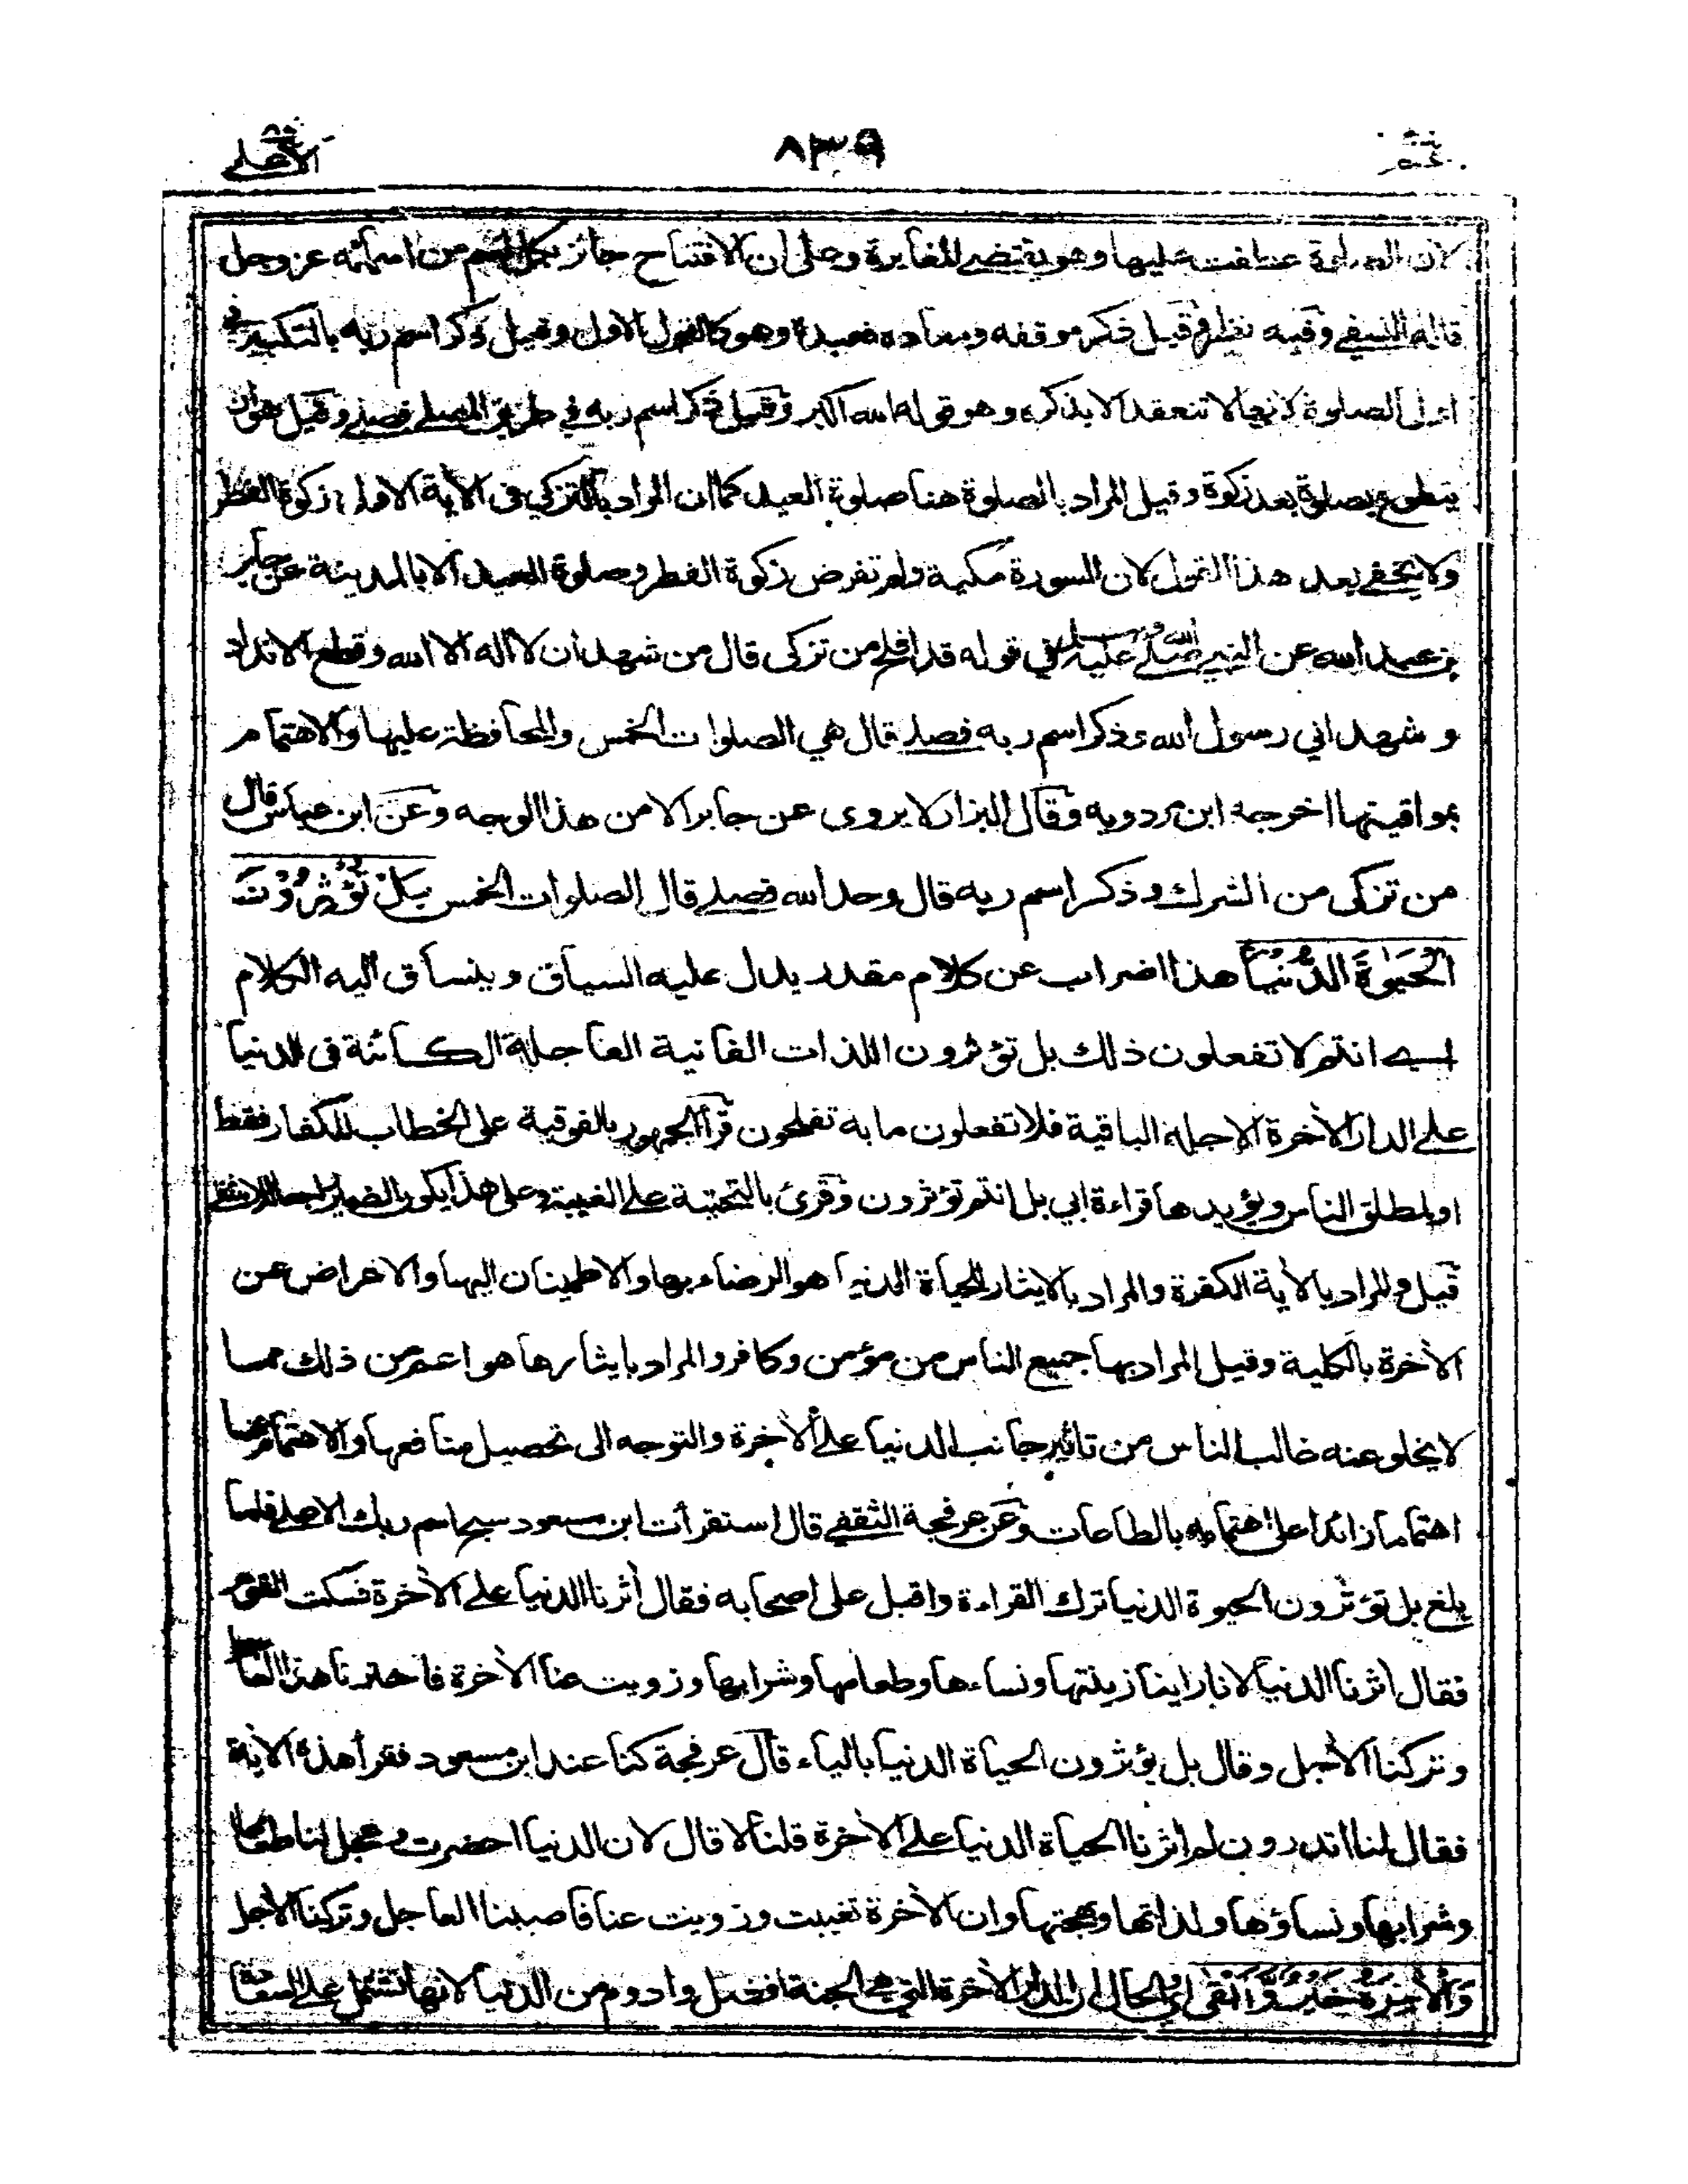 الأعلى ٨٣٩ عم
لان الصلوة عطفت عليها وهو يقتضى المغايرة وعلى ان الافتتاح جائز بكل اسم من اسمائه عز وجل
قاله النسفي وفيه نظر وقيل ذكر موقفه ومعاده فعبده وهو كالقول الاول وقيل ذكر اسم ربه بالتكبير في
اول الصلوة لانها لا تنعقد الا بذكره وهو قوله الله اكبر وقيل ذكر اسم ربه في طريق المصلى فصلى وقيل هو ان
يتطوع بصلوة بعد زكوة وقيل المراد بالصلوة هنا صلوة العيد كما ان المراد بالتزكي في الآية الاولى زكوة الفطر
ولا يخفى بعد هذا القول لان السورة مكية ولم تفرض زكوة الفطر وصلوة العيد الا بالمدينة عن جابر
بن عبد الله عن النبي صلى الله عليه وسلم في قوله قد افلح من تزكى قال من شهد ان لا اله الا الله وقطع الانداد
و شهد اني رسول الله وذكر اسم ربه فصلى قال هي الصلوات الخمس والمحافظة عليها والاهتمام
بمواقيتها اخرجه ابن مردويه وقال البزار لا يروى عن جابر الا من هذا الوجه وعن ابن عباس قال
من تزكى من الشرك وذكر اسم ربه قال وحد الله فصلى قال الصلوات الخمس بَلْ تُؤْثِرُوْنَ
الْحَيٰوةَ الدُّنْيَا هذا اضراب عن كلام مقدر يدل عليه السياق وينساق اليه الكلام
اے انتم لا تفعلون ذلك بل تؤثرون اللذات الفانية العاجلة الكائنة في الدنيا
على الدار الآخرة الاجلة الباقية فلا تفعلون ما به تفلحون قرأ الجمهور بالفوقية على الخطاب للكفار فقط
او لمطلق الناس ويؤيدها قراءة ابي بل انتم تؤثرون وقرئ بالتحتية على الغيبة وعلى هذا يكون الضمير راجعا للاشقى
قيل والمراد بالآية الكفرة والمراد بالايثار الحياة الدنيا هو الرضاء بها والاطمينان اليها والاعراض عن
الآخرة بالكلية وقيل المراد بها جميع الناس من مؤمن وكافر والمراد بايثارها هو اعم من ذلك مما
لا يخلو عنه غالب الناس من تاثير جانب الدنيا على الآخرة والتوجه الى تحصيل منافعها والاهتمام بها
اهتماما زائدا على اهتمامه بالطاعات وعن عرفجة الثقفي قال استقرأت ابن مسعود سبح اسم ربك الاعلى فلما
بلغ بل تؤثرون الحيوة الدنيا ترك القراءة واقبل على اصحابه فقال أثرنا الدنيا على الآخرة فسكت القوم
فقال اثرنا الدنيا لانا راينا زينتها ونساءها وطعامها وشرابها وزويت عنا الآخرة فاخترنا هذا العاجل
وتركنا الآجل وقال بل يؤثرون الحياة الدنيا بالياء قال عرفجة كنا عند ابن مسعود فقرأ هذه الآية
فقال لنا اتدرون لم اثرنا الحياة الدنيا على الآخرة قلنا لا قال لان الدنيا احضرت وعجل لنا طعامها
وشرابها ونساؤها ولذاتها وبهجتها وان الآخرة تغيبت وزويت عنا فاصبنا العاجل وتركنا الآجل
وَالْاٰخِرَةُ خَيْرٌ وَّاَبْقٰى اي والحال ان الدار الآخرة التي هي الجنة افضل وادوم من الدنيا لانها تشتمل على السعادة